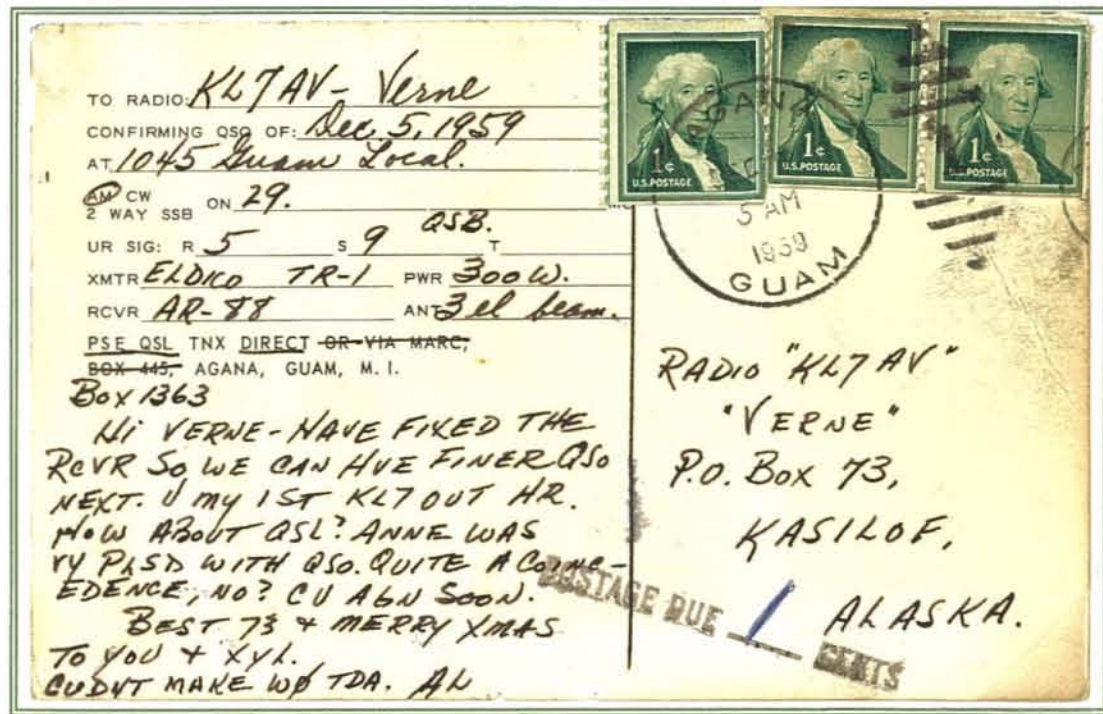 TO RADIO: KL7AV - Verne
CONFIRMING QSO OF: Dec 5, 1959
AT 1045 Guam Local.
AM CW
2 WAY SSB ON 29.
QSB.
UR SIG: R 5 S 9 T
XMTR ELDICO TR-1 PWR 300 W.
RCVR AR-88 ANT 3 el beam.
PSE QSL TNX DIRECT OR VIA MARC,
BOX 445, AGANA, GUAM, M. I.
Box 1363
HI VERNE - HAVE FIXED THE
RCVR SO WE CAN HVE FINER QSO
NEXT. U my 1ST KL7 OUT HR.
HOW ABOUT QSL? ANNE WAS
VY PLSD WITH QSO. QUITE A COINC-
EDENCE, NO? CU AGN SOON.
BEST 73 & MERRY XMAS
TO YOU & XYL.
CUDNT MAKE WØ TDA. AL
1¢
U.S. POSTAGE
1¢
U.S. POSTAGE
1¢
U.S. POSTAGE
AGANA
5 AM
1959
GUAM
RADIO "KL7AV"
"VERNE"
P.O. Box 73,
KASILOF,
ALASKA.
POSTAGE DUE 1 CENTS